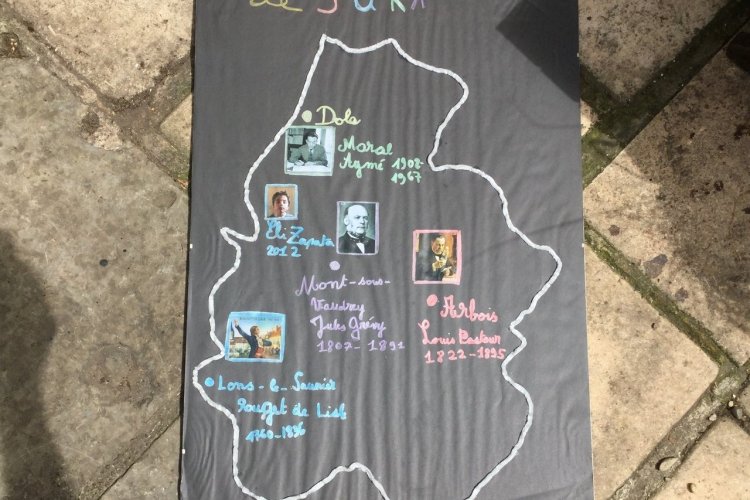 de JURA
Dole
Marcel
Aymé 1902
1967
Eli Zapata
2012
Mont-sous-
Vaudrey
Jules Grévy
1807-1891
Arbois
Louis Pasteur
1822-1895
Lons-le-Saunier
Rouget de Lisle
1760-1836